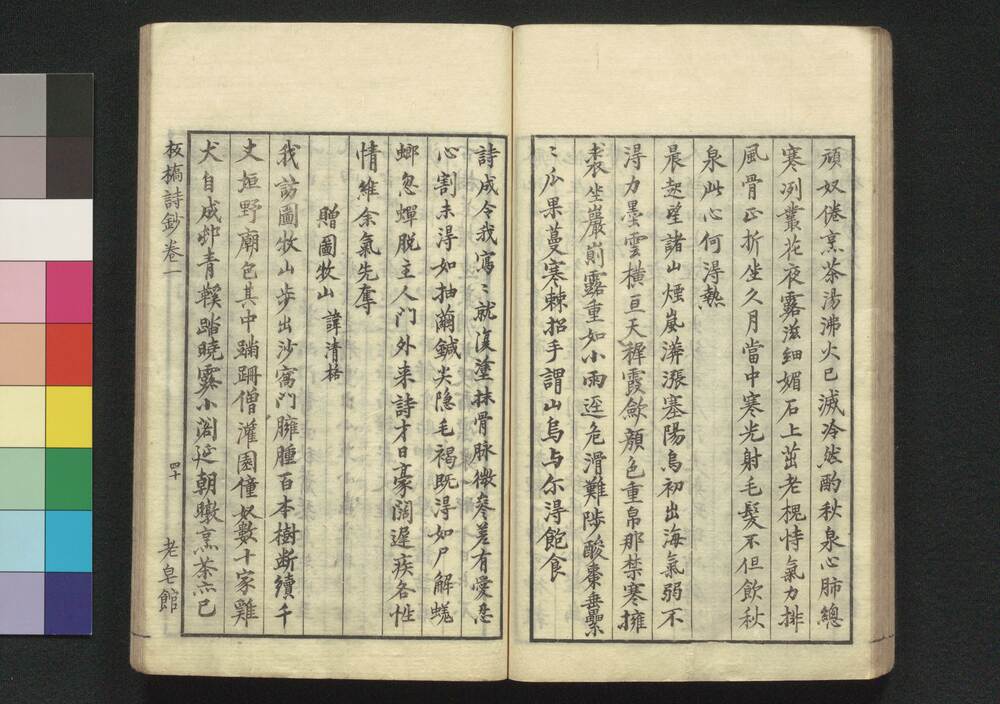 頑奴倦烹茶湯沸火已滅冷然酌秋泉心肺總
寒冽叢花夜露滋細媚石上茁老槐恃氣力排
風骨正折坐久月當中寒光射毛髮不但飲秋
泉此心何淂熱
晨起望諸山煙嵐漭漲塞陽烏初出海氣弱不
淂力墨雲橫亘天穉霞歛顏色重帛那禁寒擁
裘坐巖崱露重如小雨逕危滑難陟酸棗垂纍
〻瓜果蔓寒棘招手謂山烏与尔淂飽食
詩成令我寫〻就復塗抹骨脉微參差有愛忍
心割未淂如抽繭鍼尖隐毛褐既淂如尸解蜣
螂忽蟬脱主人門外来詩才日豪闊遲疾各性
情維余氣先奪
贈圖牧山 諱清格
我訪圖牧山步出沙窩門臃腫百本樹断續千
丈垣野廟色其中蹣跚僧灌園僮奴數十家雞
犬自成邨青鞵踏曉露小閣延朝暾烹茶亦已
板橋詩鈔卷一
四十
老皂館